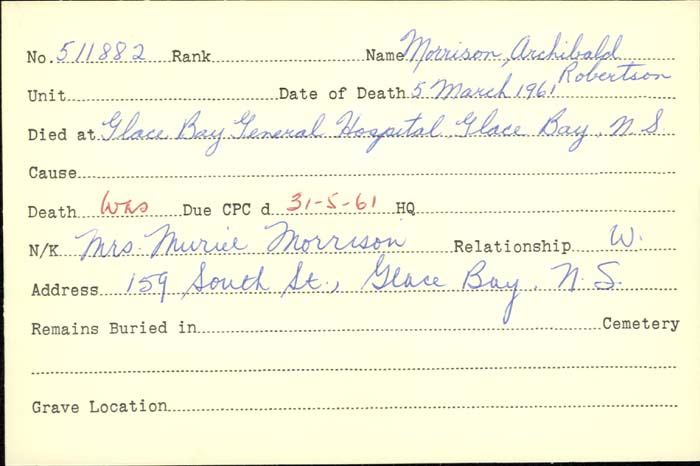 No. 511882 Rank Name Morrison, Archibald
Robertson
Unit Date of Death 5 March 1961
Died at Glace Bay General Hospital Glace Bay, N.S.
Cause
Death Was Due CPC d 31-5-61 HQ
N/K Mrs. Muriel Morrison Relationship W.
Address 159 South St., Glace Bay, N.S.
Remains Buried in Cemetery
Grave Location